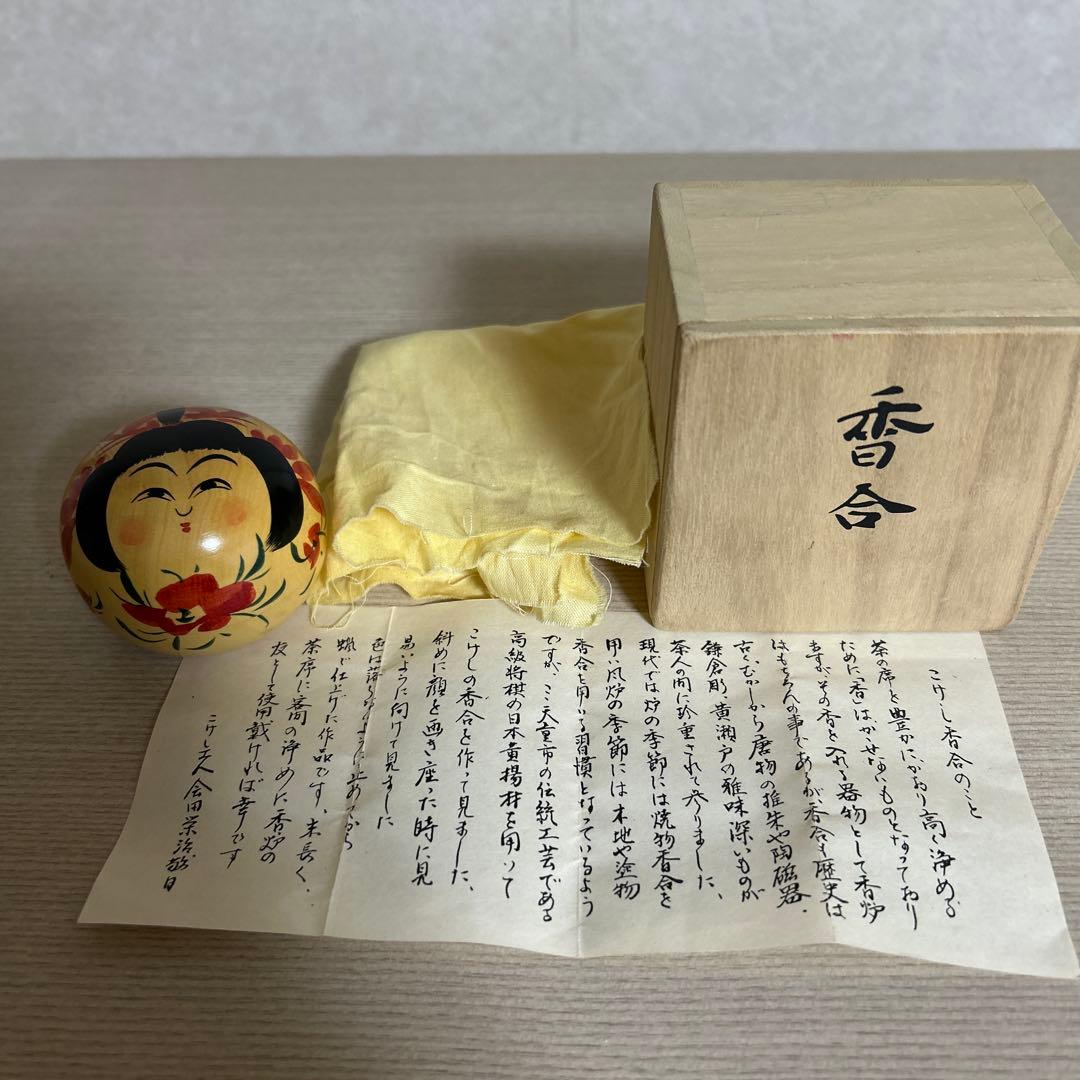 香合
こけし香合のこと
茶の席を豊かにかおり高く浄める
ために「香」はかゝせないものとなっており
ますが、その香を入れる器物として香炉
はもちろんの事であるが、香合も歴史は
古くむかしから唐物の推朱や陶磁器、
鎌倉彫、黄瀬戸の雅味深いものが
茶人の間に珍重されて参りました、
現代では炉の季節には焼物香合を
用い風炉の季節には木地や塗物
香合を用いる習慣となっているよう
ですが、ここ天童市の伝統工芸である
高級将棋の日本黄楊材を用いて
こけしの香合を作って見ました、
斜めに顔を画き座った時に見
易いように向けて見ました
色は落ちないように止めてから
蝋で仕上げた作品です、末長く、
茶席に客間の浄めに香炉の
友として使用戴ければ幸です
こけし工人 会田栄治敬白